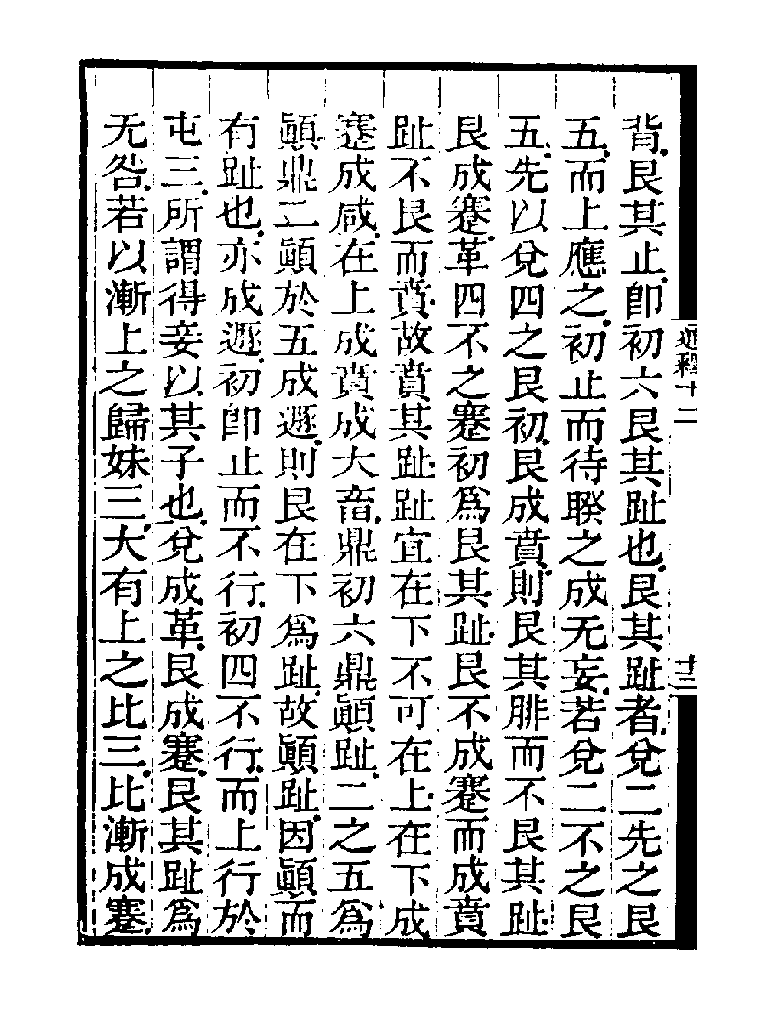 背艮其止卽初六艮其趾也艮其趾者兌二先之艮
五而上應之初止而待睽之成无妄若兌二不之艮
五先以兌四之艮初艮成賁則艮其腓而不艮其趾
艮成蹇革四不之蹇初爲艮其趾艮不成蹇而成賁
趾不艮而賁故賁其趾趾宜在下不可在上在下成
蹇成咸在上成賁成大畜鼎初六鼎顚趾二之五爲
顚鼎二顚於五成遯則艮在下爲趾故顚趾因顚而
有趾也亦成遯初卽止而不行初四不行而上行於
屯三所謂得妾以其子也兌成革艮成蹇艮其趾爲
无咎若以漸上之歸妹三大有上之比三比漸成蹇
通釋十二
十二